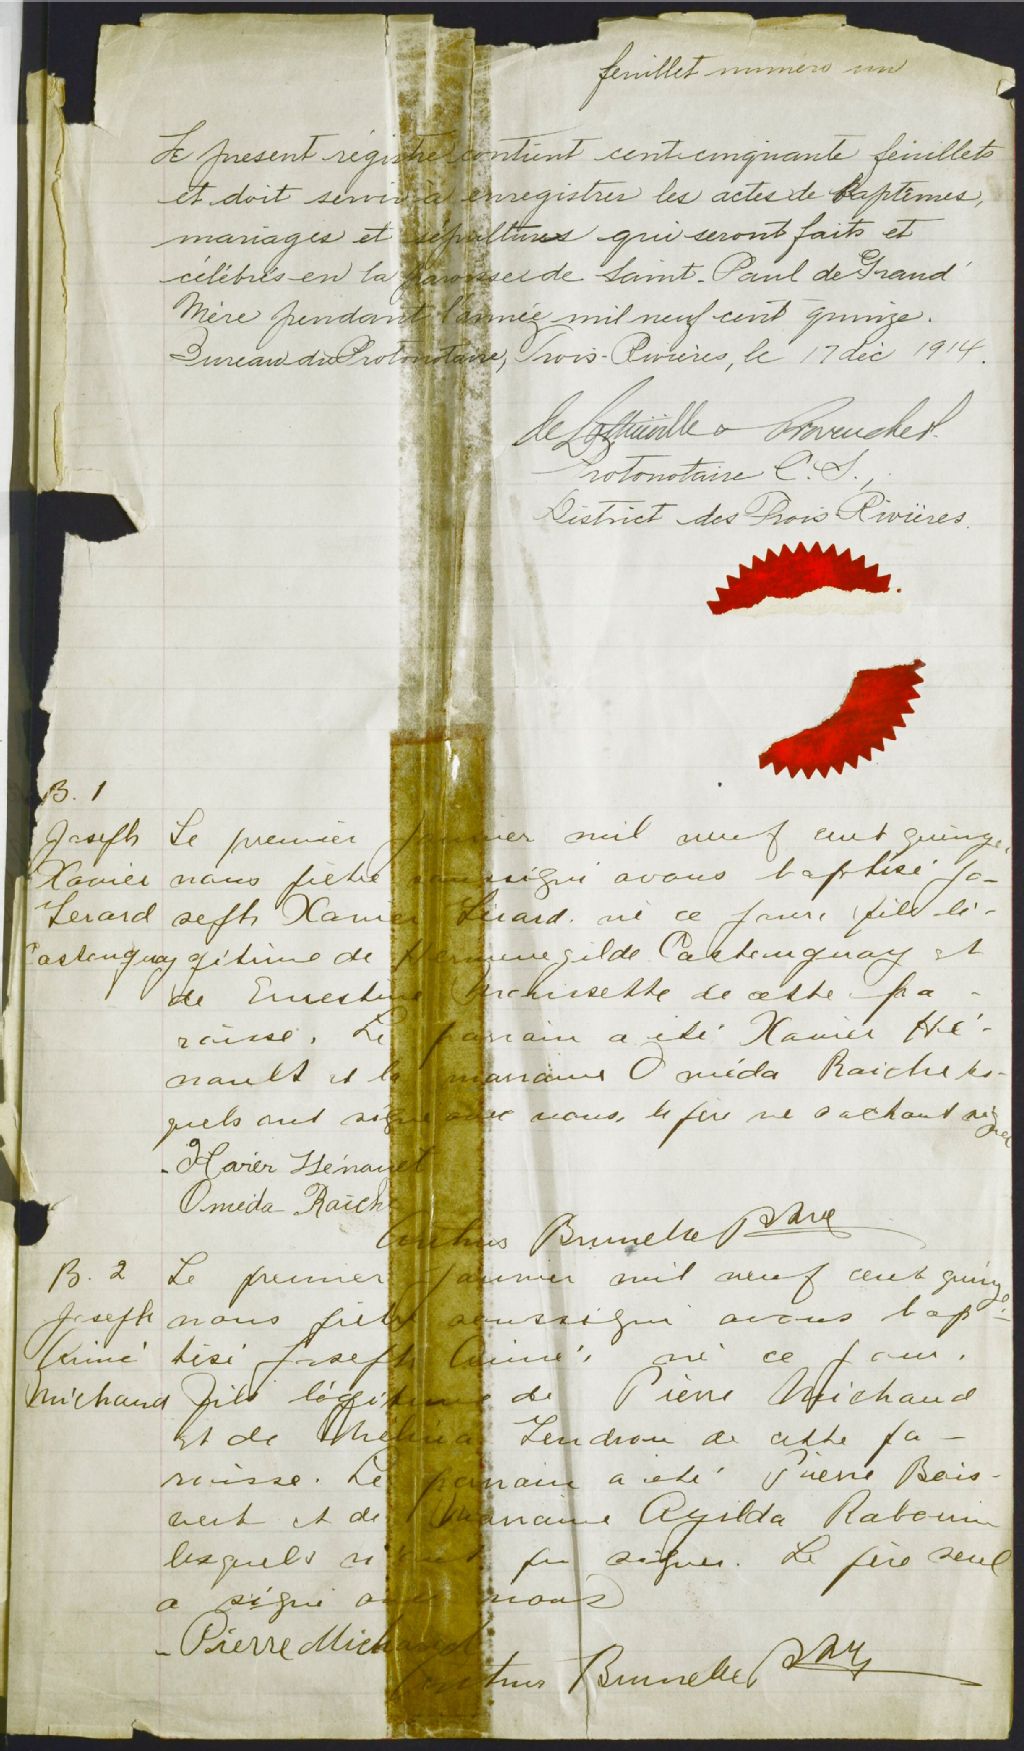 feuillet numéro un
Le présent régistre contient cent cinquante feuillets
et doit servir à enregistrer les actes de Baptêmes,
mariages et sépultures qui seront faits et
célébrés en la paroisse de Saint-Paul de Grand'
Mère pendant l'année mil neuf cent quinze.
Bureau du Protonotaire, Trois-Rivières, le 17 déc 1914.
Protonotaire C. S.,
District des Trois Rivières.
B. 1
Joseph
Xavier
Gerard
Castonguay
Le premier janvier mil neuf cent quinze,
nous prêtre soussigné avons baptisé Jo-
seph Xavier Gérard né ce jour, fils lé-
gitime de Hermenegilde Castonguay et
de Ernestine de cette pa-
roisse. Le parrain a été Xavier Hé-
nault et la marraine Oméda Raiche les-
quels ont signé avec nous, le père ne sachant signer
- Xavier Hénault
Oméda Raiche
Arthur Brunelle Ptre
B. 2
Joseph
Aimé
Michaud
Le premier janvier mil neuf cent quinze
nous prêtre soussigné avons bap-
tisé Joseph Aimé, né ce jour,
fils légitime de Pierre Michaud
et de Gendron de cette pa-
roisse. Le parrain a été Pierre Bois-
vert et de marraine Azilda Rabouin
lesquels n'ont pu signer. Le père seul
a signé avec nous
- Pierre Michaud
Arthur Brunelle Ptre